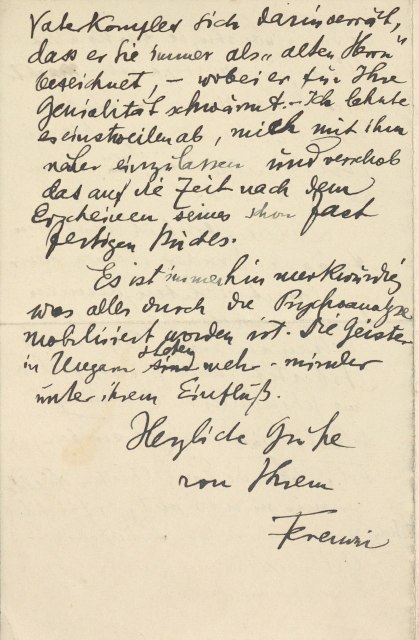 Vaterkomplex sich darin verrät,
dass er Sie immer als „alten Herrn"
bezeichnet, – wobei er für Ihre
Genialität schwärmt. – Ich lehnte
es einstweilen ab, mich mit ihm
näher einzulassen und verschob
das auf die Zeit nach dem
Erscheinen seines schon fast
fertigen Buches.
Es ist immerhin merkwürdig
was alles durch die Psychoanalyse
mobilisiert worden ist. Die Geister
in Ungarn stehen sind mehr-minder
unter ihrem Einfluß.
Herzliche Grüße
von Ihrem
Ferenczi